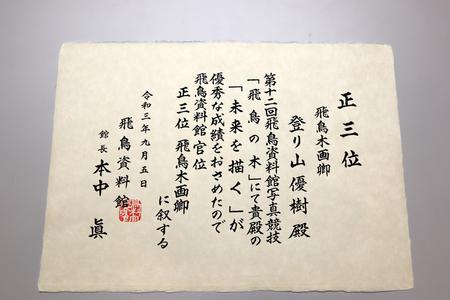 正三位
飛鳥木画卿
登り山優樹殿
第十二回飛鳥資料館写真競技
「飛鳥の木」にて貴殿の
「未来を描く」が
優秀な成績をおさめたので
飛鳥資料館官位
正三位 飛鳥木画卿
に叙する
令和三年九月五日
飛鳥資料館
館長 本中 眞